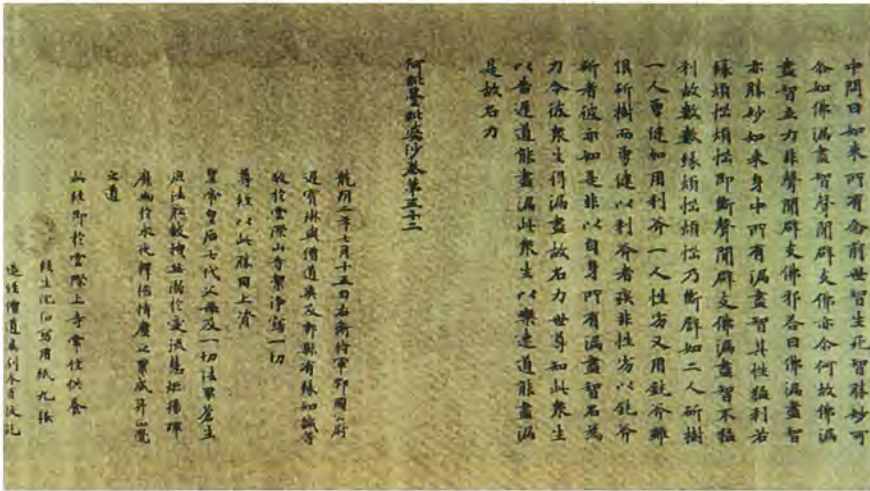 中問曰如來所有念前世智生死智勝妙可
尒如佛漏盡智聲聞辟支佛亦尒何故佛漏
盡智立力非聲聞辟支佛耶荅曰佛漏盡智
亦勝妙如來身中所有漏盡智其性猛利若
緣煩惱煩惱即斷聲聞辟支佛漏盡智不猛
利故數數緣煩惱煩惱乃斷譬如二人斫樹
一人勇健加用利斧一人性劣又用鈍斧雖
俱斫樹而勇健以利斧者疾非性劣以鈍斧
斫者彼亦如是非以自身所有漏盡智名為
力令彼衆生得漏盡故名力世尊知此衆生
以苦遲道能盡漏此衆生以樂速道能盡漏
是故名力
阿毗曇毗婆沙卷第五十二
龍朔二年七月十五日右衛將軍鄂國公尉
遲寶琳與僧道爽及鄠縣有緣知識等
敬於雲際山寺潔淨寫一切
尊經以此勝因上資
皇帝皇后七代父母及一切法界蒼生
庶法船鼓枻無溺於愛流慧炬揚暉
靡幽於永夜釋擔情塵之累咸升正覺
之道
此經即於雲際上寺常住供養
經生沈弘寫用紙九張
造經僧道爽別本再校訖